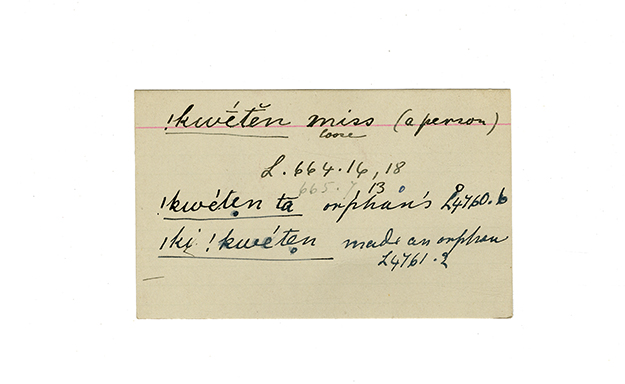 !kwétĕn miss (a person)
loose
L. 664.16, 18
665.7 13
!kwéten ta orphan's L4760.6
!kị !kwéten made an orphan
L4761.2